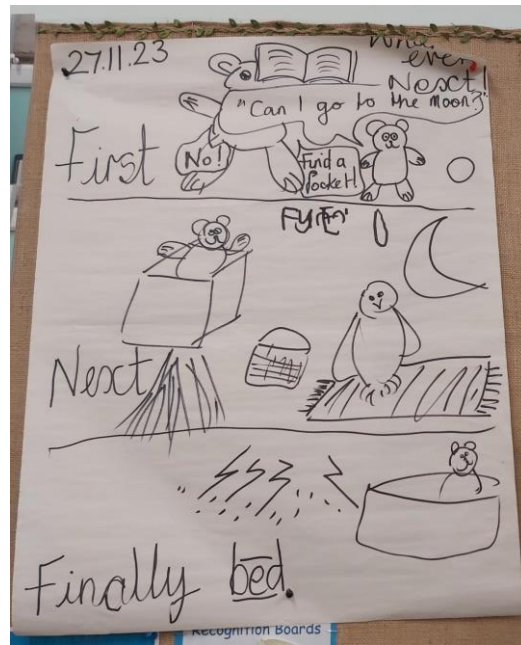 27.11.23
What
ever
Next!
"Can I go to the Moon?"
First
No!
Find a
Rocket!
Next
Finally bed.
Recognition Boards